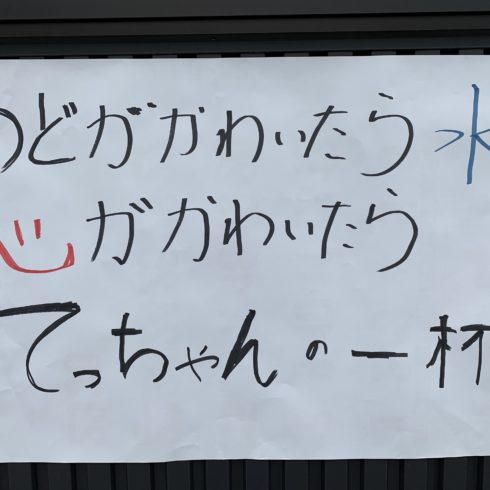 のどがかわいたら水
心がかわいたら
てっちゃんの一杯